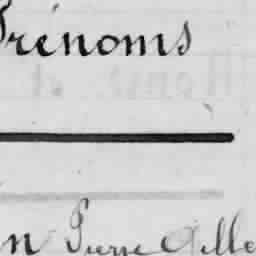 Prénoms
n Pierre Gille